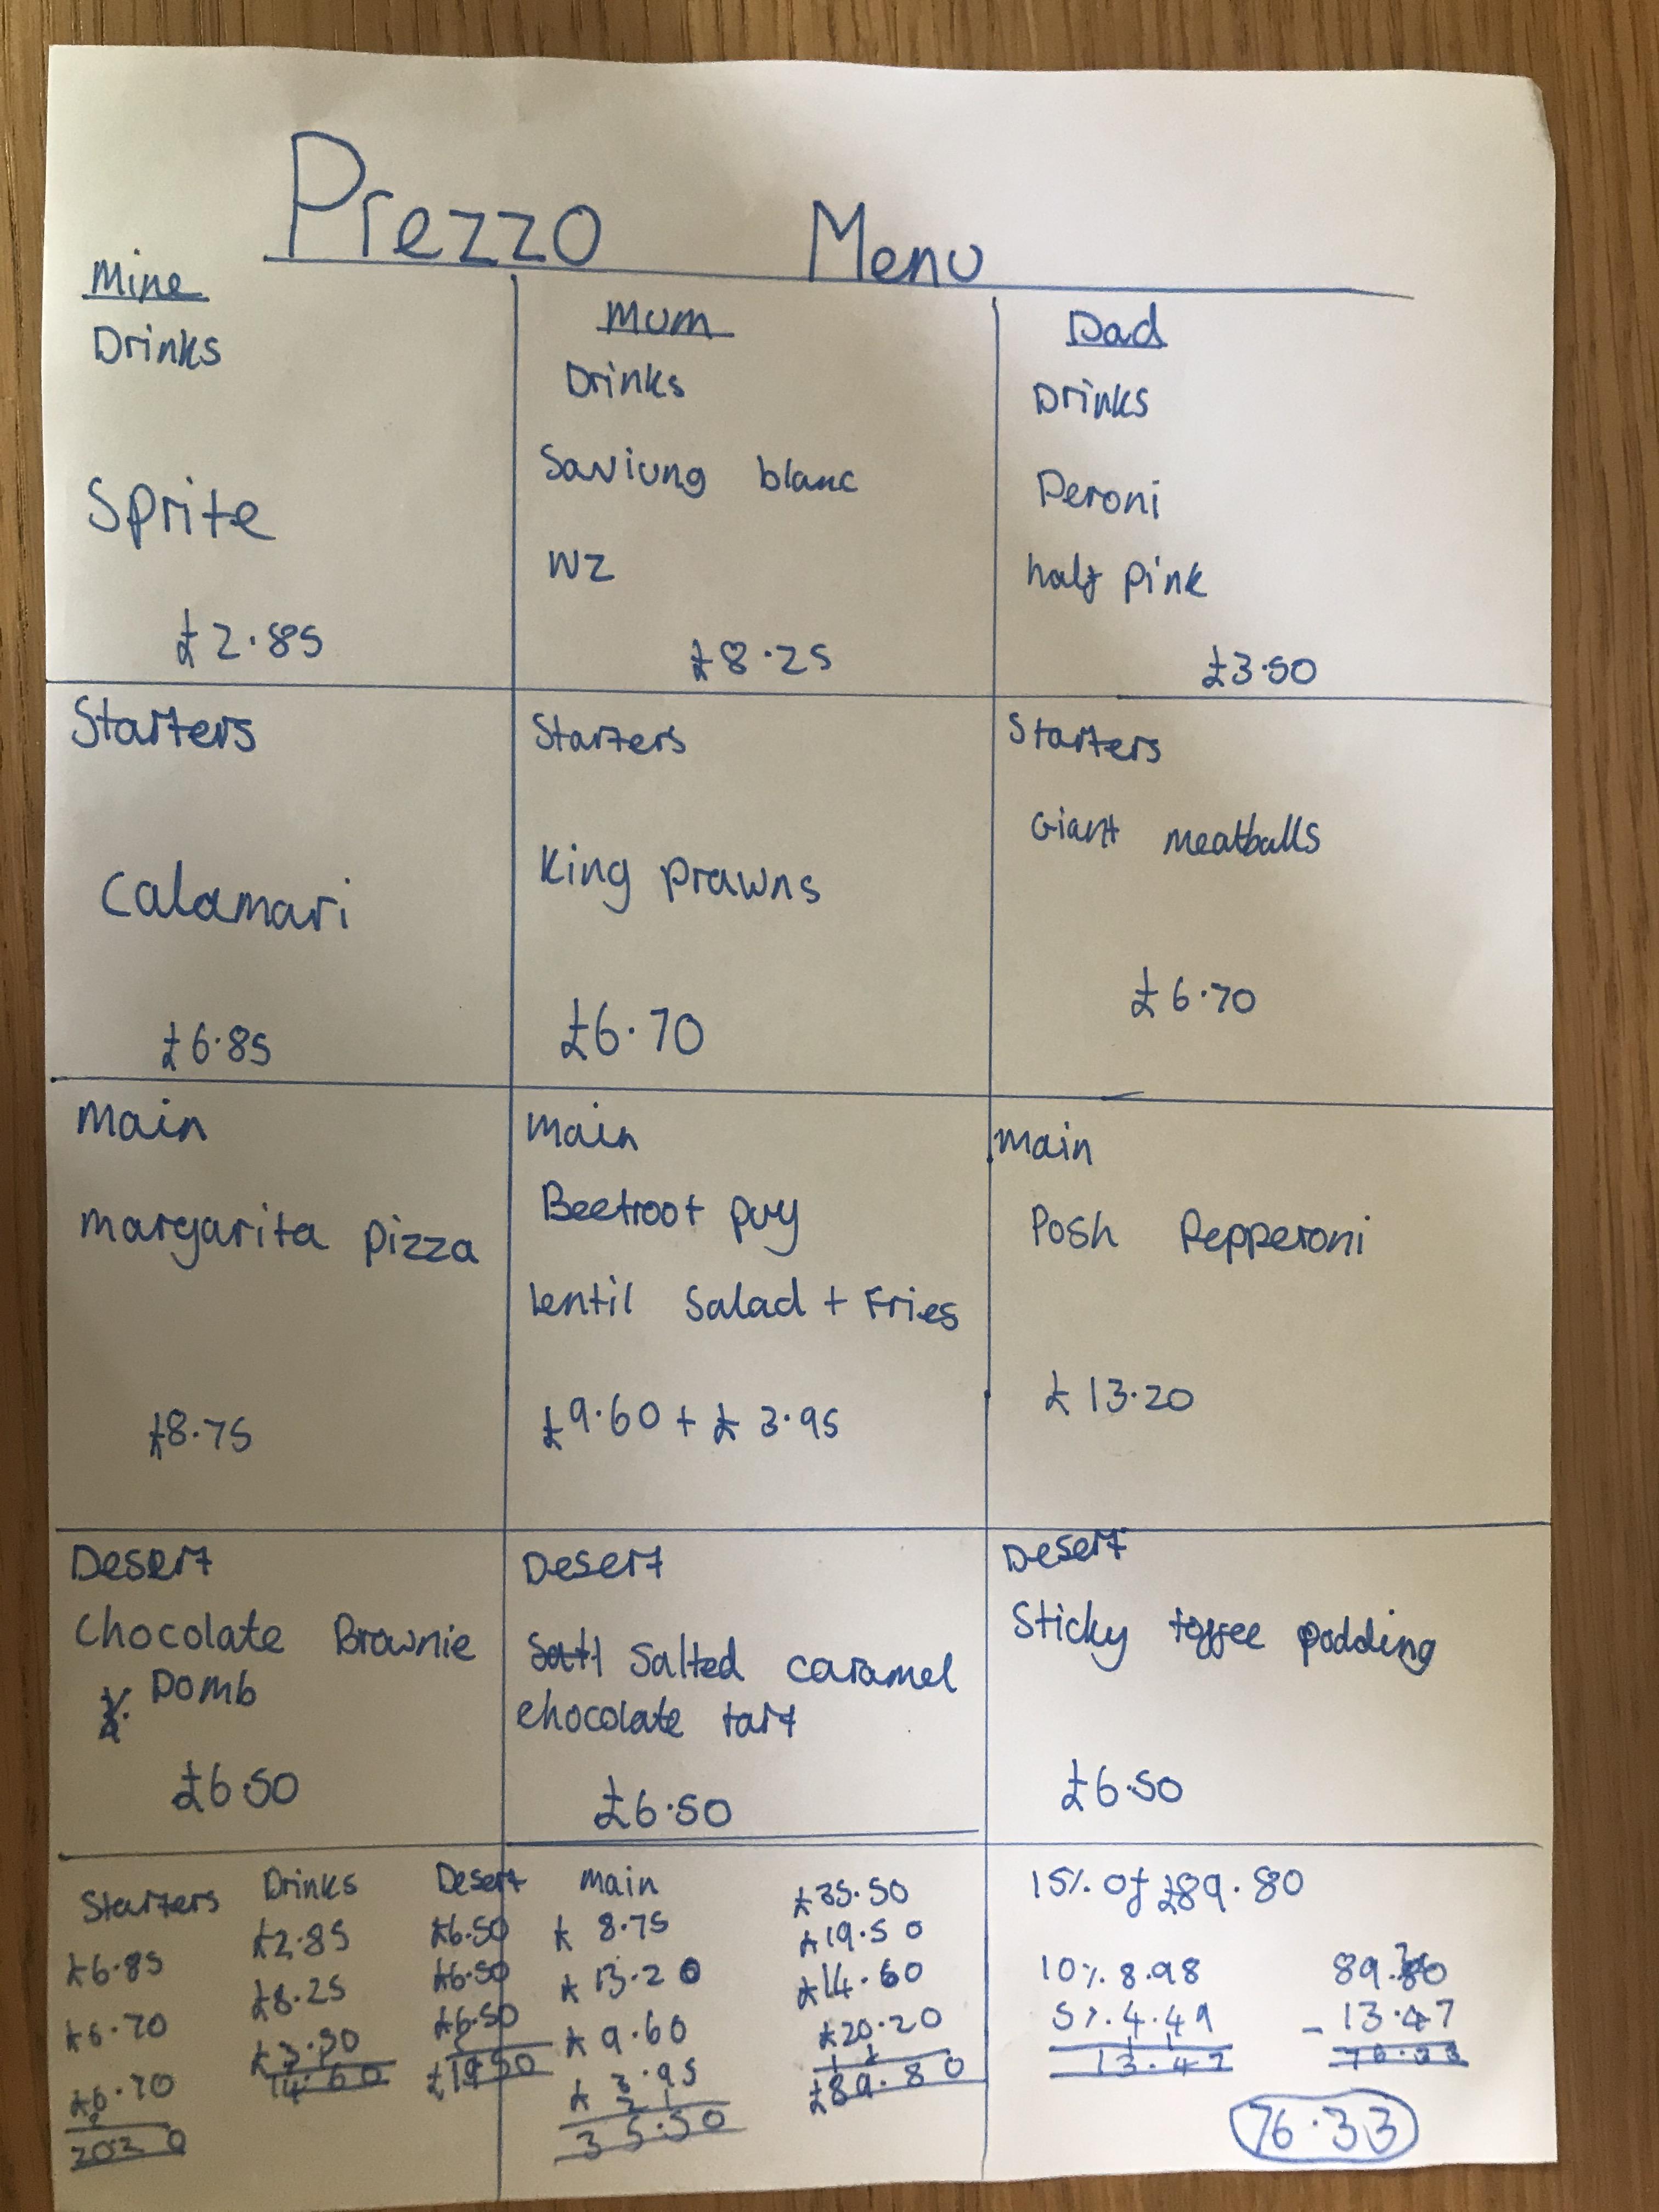 Prezzo Menu
Mine
Drinks
Sprite
£2.85
Mum
Drinks
Saviung blanc
NZ
£8.25
Dad
Drinks
Peroni
half pink
£3.50
Starters
Calamari
£6.85
Starters
King prawns
£6.70
Starters
Giant meatballs
£6.70
Main
margarita pizza
£8.75
Main
Beetroot puy
lentil Salad + Fries
£9.60 + £3.95
main
Posh Pepperoni
£13.20
Desert
Chocolate Brownie
Domb
£6.50
Desert
Salted caramel
chocolate tart
£6.50
Desert
Sticky toffee podding
£6.50
Starters
£6.85
£6.70
£6.70
20.20
Drinks
£2.85
£8.25
£3.50
14.60
Desert
£6.50
£6.50
£6.50
£19.50
Main
£8.75
£13.20
£9.60
£3.95
35.50
£35.50
£19.50
£14.60
£20.20
£89.80
15% of £89.80
10% 8.98
5% 4.49
13.47
89.80
- 13.47
76.33
76.33